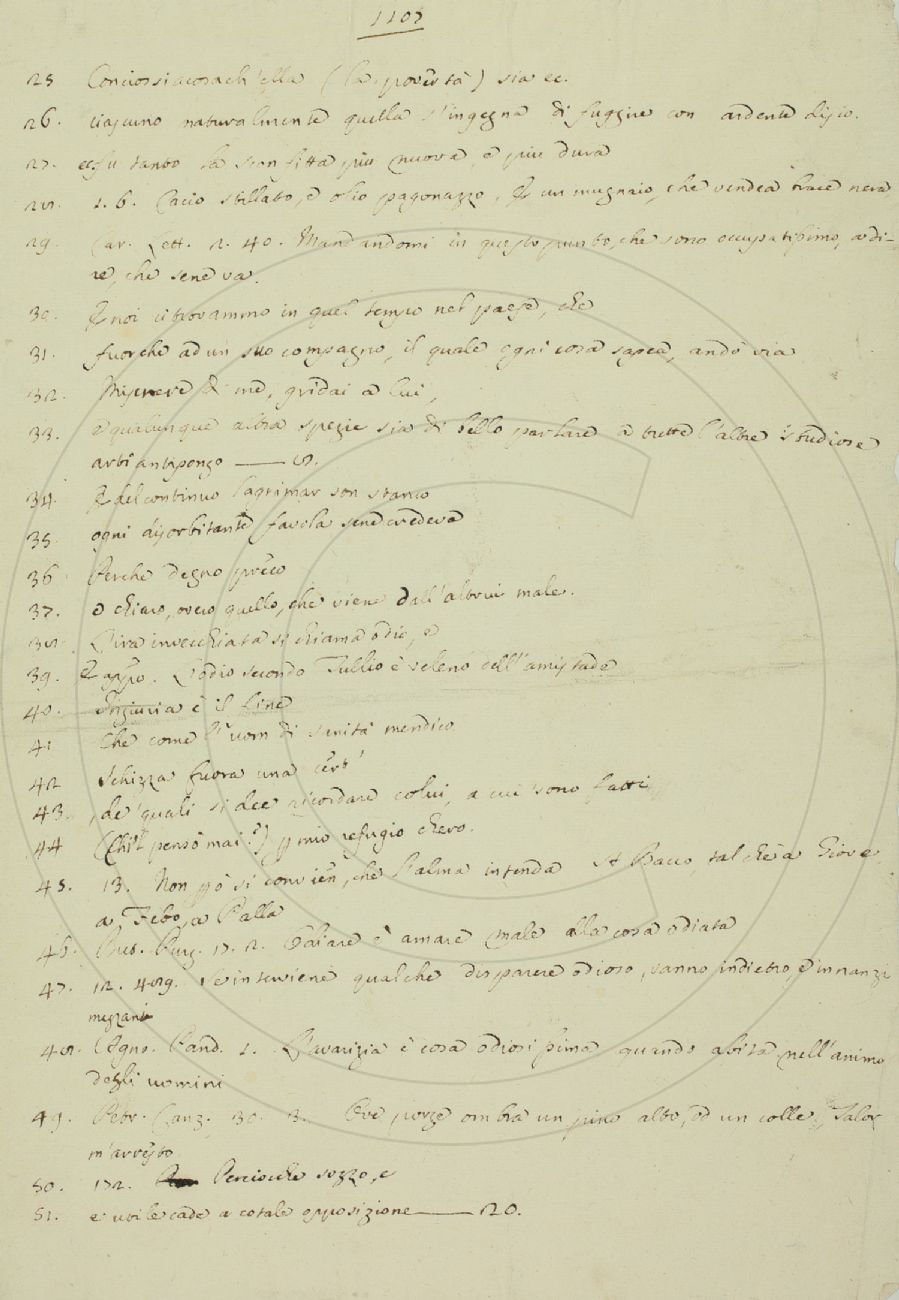 1107
25 Conciossiacosach'ella (la povertà) sia ec.
26. ciascuno naturalmente quella s'ingegna di fuggire con ardente disio.
27. tanto la sconfitta più nuova, e più dura
28. 1. 6. Cacio stillato, e olio pagonazzo, E un mugnaio, che vendea brace nera
29. Car. Lett. 2. 40. Mandandomi in questo punto, che sono occupatissimo, a di-
re, che sene va.
30. E noi ci trovammo in quel tempo nel paese, che
31. fuorchè ad un suo compagno, il quale ogni cosa sapea, andò via
32. Miserere di me, gridai a lui,
33. e qualunque altra spezie sia di bello parlare a tutte l'altre studiose
arti antipongo —— 8.
34. E del continuo lagrimar son stanco
35. ogni disorbitante favola sene credeva
36. Perche degno
37. e chiaro, ovvero quello, che viene dall'altrui male.
38. L'ira invecchiata si chiama odio, e
39. E appo. L'odio secondo Tullio è veleno dell'amistade
40. Ingiuria è il fine
41 Che come l'uom di sanità mendico
42 schizza fuora una cert'
43. de' quali si dee ricordare colui, a cui sono fatti
44 (Chi'l pensò mai?) p mio refugio chero.
45. 13. Non pò si convien, che l'alma intenda A Bacco, tal che a Giove,
a Febo, a Palla
46. But. Purg. 17. 2. Odiare è amare male alla cosa odiata
47. 12. 489. Se interviene qualche disparere odioso, vanno indietro, e innanzi
mezzani
48. Agno. Pand. 1. L'avarizia è cosa odiosissima quando abita nell'animo
degli uomini
49. Petr. Canz. 30. 3. Ove porge ombra un pino alto, od un colle, Talor
m'arresto
50. 172. Perciocche sozzo, e
51. e utile cade a cotale opposizione —— 20.